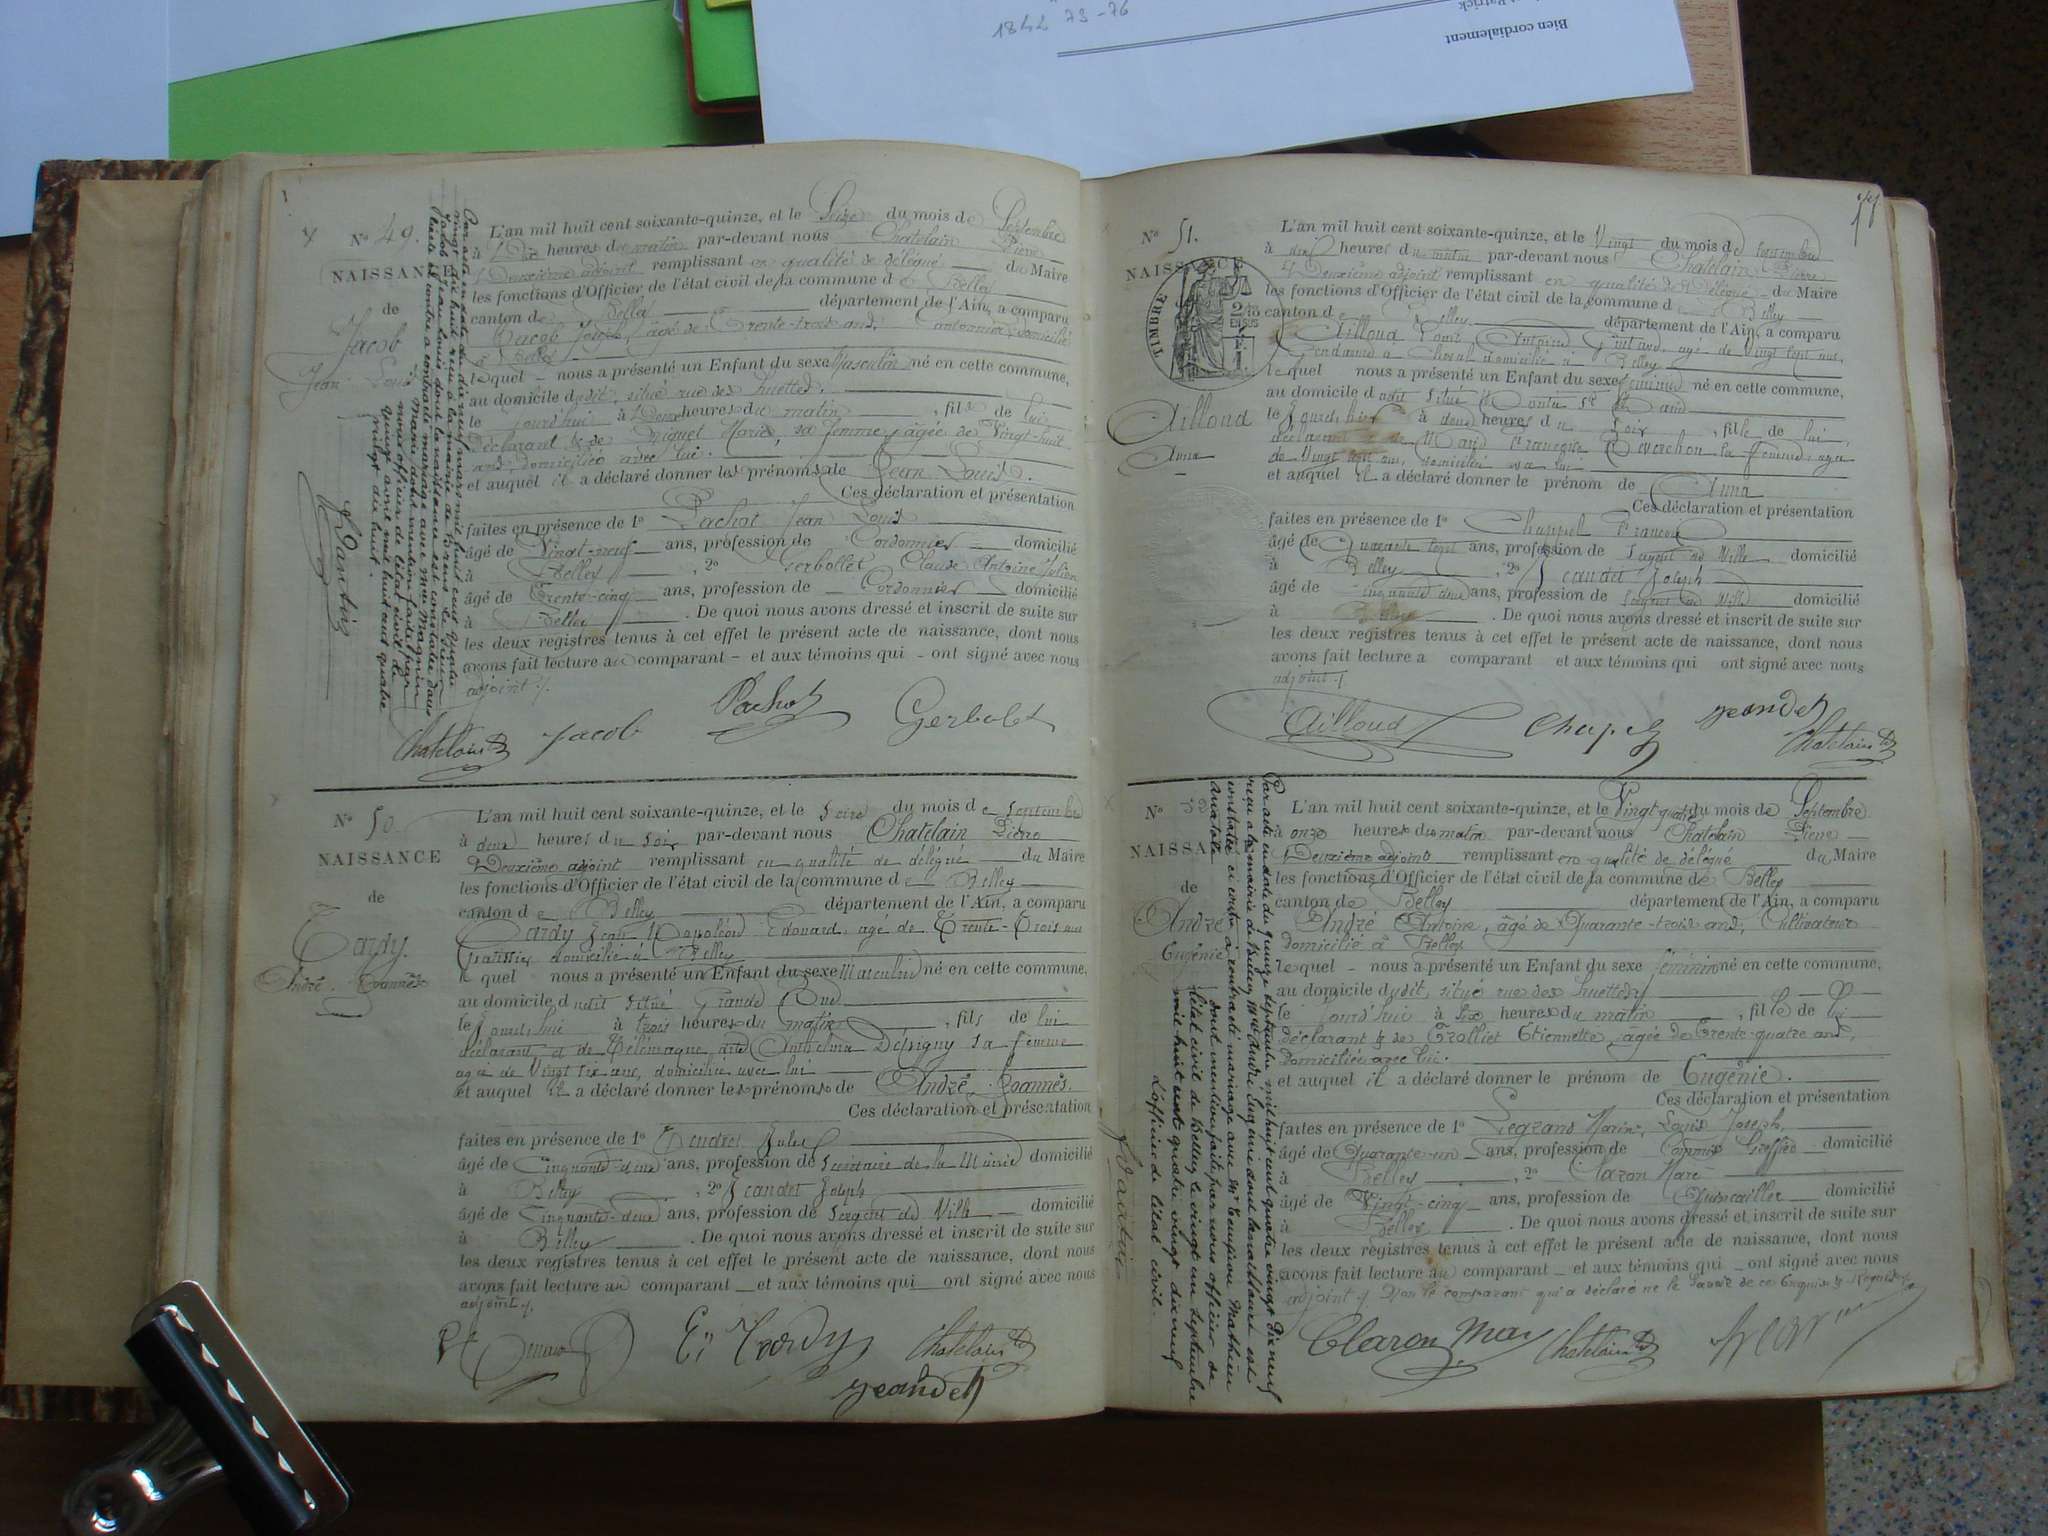 1844 73-76
Bien cordialement
Patrick
Nº 49.
NAISSANCE
de
Jacob
Jean Louis
L'an mil huit cent soixante-quinze, et le Seize du mois de Septembre
à Dix heures du matin par-devant nous Chatelain Pierre
Deuxième adjoint remplissant en qualité de délégué du Maire
les fonctions d'Officier de l'état civil de la commune de Belley
canton de Belley département de l'Ain, a comparu
Jacob Joseph, âgé de Trente-trois ans, Cantonnier domicilié
à Belley
lequel nous a présenté un Enfant du sexe Masculin né en cette commune,
au domicile dudit, situé rue des huettes.
le jourd'hui à Deux heures du matin, fils de lui
déclarant & de Miguet Marie, sa femme, âgée de Vingt-huit
ans, domiciliée avec lui.
et auquel il a déclaré donner les prénoms de Jean Louis.
Ces déclaration et présentation
faites en présence de 1º Pachot Jean Louis
âgé de Vingt-neuf ans, profession de Cordonnier domicilié
à Belley, 2º Gerbollet Claude Antoine Julien
âgé de Trente-cinq ans, profession de Cordonnier domicilié
à Belley. De quoi nous avons dressé et inscrit de suite sur
les deux registres tenus à cet effet le présent acte de naissance, dont nous
avons fait lecture au comparant et aux témoins qui ont signé avec nous
adjoint
Chatelain Jacob Pachot Gerbolet
Par acte en date du dix neuf mars mil huit cent quatre
vingt dix huit reçu à la mairie de Brens le sieur
Jacob Jean Louis dont la naissance est constatée dans
l'acte ci contre a contracté mariage avec Mlle Maignin
Marie dont mention faite par
nous officier de l'état civil le
quinze avril mil huit cent quatre
vingt dix huit.
Nº 50.
NAISSANCE
de
Tardy.
André Joannès
L'an mil huit cent soixante-quinze, et le seize du mois de Septembre
à deux heures du soir par-devant nous Chatelain Pierre
Deuxième adjoint remplissant en qualité de délégué du Maire
les fonctions d'Officier de l'état civil de la commune de Belley
canton de Belley département de l'Ain, a comparu
Tardy Jean Napoléon Edouard, agé de Trente-Trois ans
patissier domicilié à Belley
lequel nous a présenté un Enfant du sexe Masculin né en cette commune,
au domicile dudit situé Grande Rue
le jourd'hui à trois heures du matin, fils de lui
déclarant et de Anthelmie Désigny sa femme
agée de Vingt six ans, domiciliée avec lui
et auquel il a déclaré donner les prénoms de André Joannès.
Ces déclaration et présentation
faites en présence de 1º Jules
âgé de Cinquante deux ans, profession de Secrétaire de la Mairie domicilié
à Belley, 2º Jeandet Joseph
âgé de Cinquante-deux ans, profession de Sergent de Ville domicilié
à Belley. De quoi nous avons dressé et inscrit de suite sur
les deux registres tenus à cet effet le présent acte de naissance, dont nous
avons fait lecture au comparant et aux témoins qui ont signé avec nous
adjoint
E. Tardy Chatelain
Jeandet
Nº 51.
NAISSANCE
TIMBRE
2/10
EN SUS
Ailloud
Anna
L'an mil huit cent soixante-quinze, et le Vingt du mois de Septembre
à dix heures du matin par-devant nous Chatelain Pierre
Deuxième adjoint remplissant en qualité de Délégué du Maire
les fonctions d'Officier de l'état civil de la commune de Belley
canton de Belley département de l'Ain, a comparu
Ailloud Louis, agé de Vingt sept ans,
Gendarme à Cheval domicilié à Belley
lequel nous a présenté un Enfant du sexe féminin né en cette commune,
au domicile dudit situé
le à deux heures du soir, fille de lui,
déclarant & de Marie Françoise Reverchon sa femme, agée
de Vingt ans, domiciliée avec lui
et auquel il a déclaré donner le prénom de Anna
Ces déclaration et présentation
faites en présence de 1º Chappel François
âgé de Quarante sept ans, profession de Sergent de Ville domicilié
à Belley, 2º Jeandet Joseph
âgé de Cinquante deux ans, profession de Sergent de Ville domicilié
à Belley. De quoi nous avons dressé et inscrit de suite sur
les deux registres tenus à cet effet le présent acte de naissance, dont nous
avons fait lecture a comparant et aux témoins qui ont signé avec nous
adjoint
Ailloud Chapel Jeandet
Chatelain
Nº 52
NAISSA
de
André
Eugénie
L'an mil huit cent soixante-quinze, et le Vingt quatre du mois de Septembre
à onze heures du matin par-devant nous Chatelain Pierre
Deuxième adjoint remplissant en qualité de délégué du Maire
les fonctions d'Officier de l'état civil de la commune de Belley
canton de Belley département de l'Ain, a comparu
André Antoine, âgé de Quarante-trois ans, Cultivateur
domicilié à Belley
lequel nous a présenté un Enfant du sexe féminin né en cette commune,
au domicile dudit, situé rue des huettes
le jourd'hui à Six heures du matin, fille de lui
déclarant & de Trolliet Etiennette, âgée de Trente-quatre ans,
domiciliée avec lui.
et auquel il a déclaré donner le prénom de Eugénie.
Ces déclaration et présentation
faites en présence de 1º Legrand Marin, Louis Joseph,
âgé de Quarante-un ans, profession de Commis Greffier domicilié
à Belley, 2º Claron Marc
âgé de Vingt-cinq ans, profession de Quincailler domicilié
à Belley. De quoi nous avons dressé et inscrit de suite sur
les deux registres tenus à cet effet le présent acte de naissance, dont nous
avons fait lecture au comparant et aux témoins qui ont signé avec nous
adjoint Non le comparant qui a déclaré ne le savoir de ce Enquis & Requis
Claron Marc Chatelain
Par acte en date du quinze septembre mil huit cent quatre vingt dix neuf
reçu à la mairie de Belley Mlle André Eugénie dont la naissance est
constatée ci contre a contracté mariage avec Mr Mathieu
dont mention faite par nous officier de
l'état civil de Belley le vingt un septembre
mil huit cent quatre vingt dix neuf
L'officier de l'état civil.